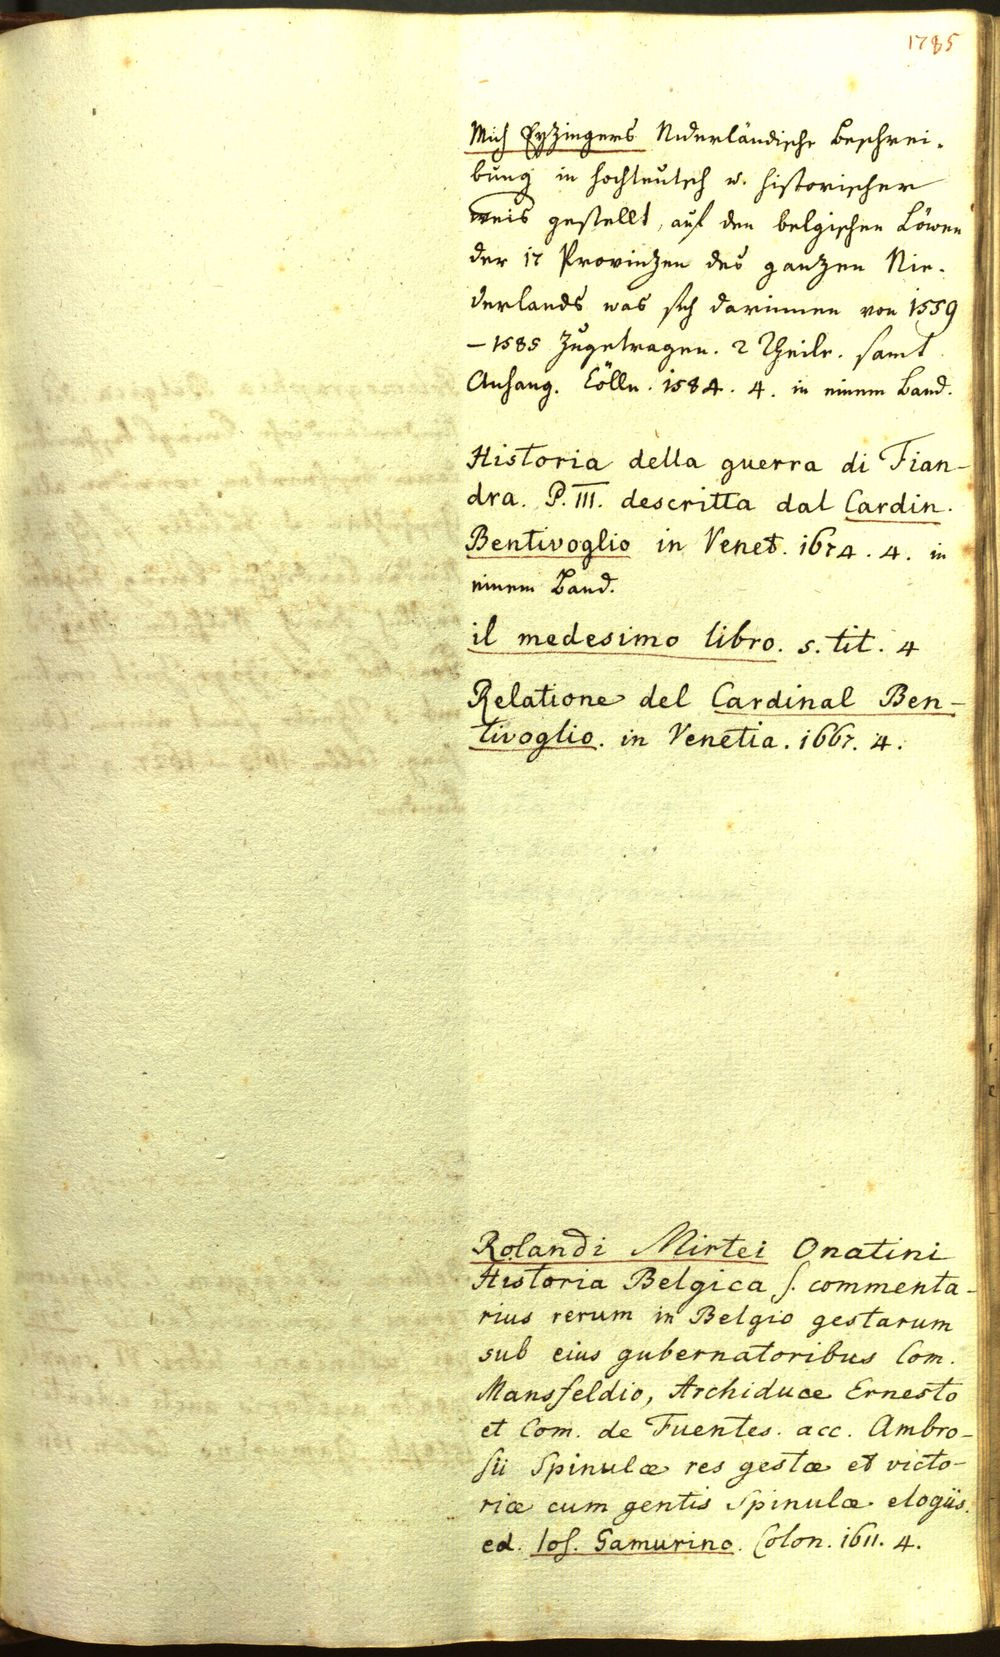 1785
Mich Eyzingers Niderländische Beschrei-
bung in hochteutsch u. historischer
weis gestellt, auf den belgischen Löwen
der 17 Provinzen des ganzen Nie-
derlands was sich darinnen von 1559
– 1585 zugetragen. 2 Theile. samt
Anhang. Cölln. 1584. 4. in einem Band.
Historia della guerra di Fian-
dra. P. III. descritta dal Cardin.
Bentivoglio in Venet. 1674. 4. in
einem Band.
il medesimo libro. s. tit. 4
Relatione del Cardinal Ben-
tivoglio. in Venetia. 1667. 4.
Rolandi Mirtei Onatini
Historia Belgica s. commenta-
rius rerum in Belgio gestarum
sub eius gubernatoribus Com.
Mansfeldio, Archiduce Ernesto
et Com. de Fuentes. acc. Ambro-
sii Spinulæ res gestæ et victo-
riæ cum gentis Spinulæ elogiis.
ed. Ios. Gamurino. Colon. 1611. 4.